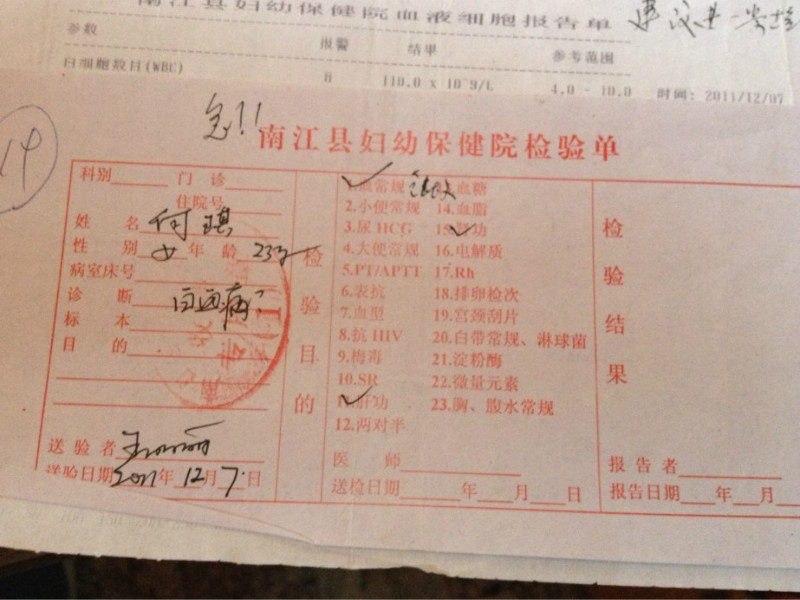 南江县妇幼保健院血液细胞报告单
参数 报警 结果 参考范围
白细胞数目(WBC) H 110.0 x 10 9/L 4.0 - 10.0 时间: 2011/12/07
14
急!!
南江县妇幼保健院检验单
科别 门诊
住院号
姓名 何琪
性别 女 年龄 23岁
病室床号
诊断 白血病?
标本
目的
送验者
送验日期 2011年 12月 7日
检验目的
1.血常规 血糖
2.小便常规 14.血脂
3.尿HCG 15.肾功
4.大便常规 16.电解质
5.PT/APTT 17.Rh
6.表抗 18.排卵检次
7.血型 19.宫颈刮片
8.抗HIV 20.白带常规、淋球菌
9.梅毒 21.淀粉酶
10.SR 22.微量元素
11.肝功 23.胸、腹水常规
12.两对半
医师
送检日期 年 月 日
检验结果
报告者
报告日期 年 月